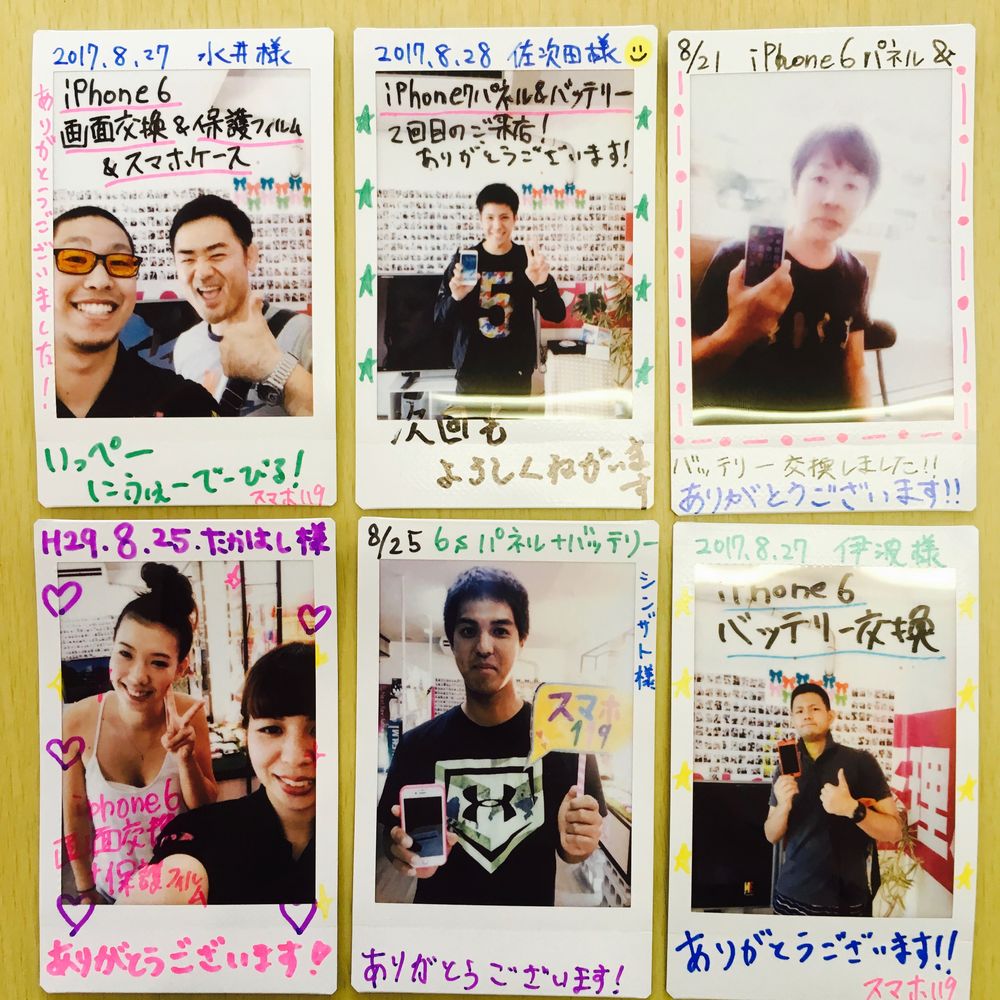 2017.8.27 水井様
iPhone6
画面交換&保護フィルム
&スマホケース
ありがとうございました!
いっぺー
にふぇーでーびる!
スマホ119
2017.8.28 佐次田様
iPhone7パネル&バッテリー
2回目のご来店!
ありがとうございます!
5
次回も
よろしくねがいます
8/21 iPhone6パネル&
バッテリー交換しました!!
ありがとうございます!!
H29.8.25.たかはし様
iphone6
画面交換
+保護フィルム
ありがとうございます!
8/25 6sパネル+バッテリー
シンザト様
スマホ
119
ありがとうございます!
2017.8.27 伊波様
iPhone6
バッテリー交換
理
ありがとうございます!!
スマホ119